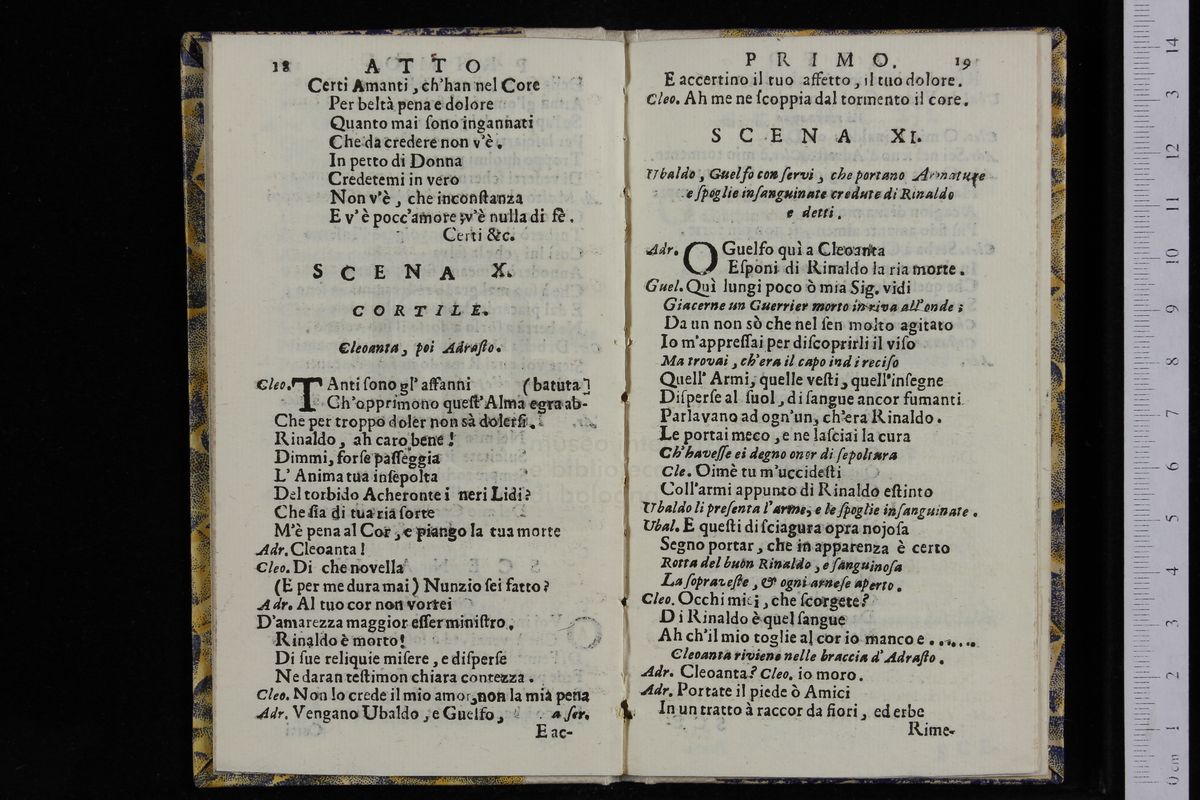 18 ATTO
Certi Amanti, ch'han nel Core
Per beltà pena e dolore
Quanto mai ſono ingannati
Che da credere non v'è.
In petto di Donna
Credetemi in vero
Non v'è, che inconſtanza
E v'è pocc'amore, v'è nulla di fè.
Certi &c.
SCENA X.
CORTILE.
Cleoanta, poi Adraſto.
Cleo. TAnti ſono gl' affanni (batuta]
Ch'opprimono queſt'Alma egra ab-
Che per troppo doler non sà dolerſi.
Rinaldo, ah caro bene!
Dimmi, forſe paſſeggia
L' Anima tua inſepolta
Del torbido Acheronte i neri Lidi?
Che ſia di tua ria ſorte
M'è pena al Cor, e piango la tua morte
Adr. Cleoanta!
Cleo. Di che novella
(E per me dura mai) Nunzio ſei fatto?
Adr. Al tuo cor non vorrei
D'amarezza maggior eſſer miniſtro.
Rinaldo è morto!
Di ſue reliquie miſere, e diſperſe
Ne daran teſtimon chiara contezza.
Cleo. Non lo crede il mio amor, non la mia pena
Adr. Vengano Ubaldo, e Guelfo, a ſer.
E ac-
PRIMO. 19
E accertino il tuo affetto, il tuo dolore.
Cleo. Ah me ne ſcoppia dal tormento il core.
SCENA XI.
Ubaldo, Guelfo con ſervi, che portano Armature
e ſpoglie inſanguinate credute di Rinaldo
e detti.
Adr. O Guelfo quì a Cleoanta
Eſponi di Rinaldo la ria morte.
Guel. Quì lungi poco ò mia Sig. vidi
Giacerne un Guerrier morto in riva all' onde;
Da un non sò che nel ſen molto agitato
Io m'appreſſai per diſcoprirli il viſo
Ma trovai, ch'era il capo indi reciſo
Quell' Armi, quelle veſti, quell'inſegne
Diſperſe al ſuol, di ſangue ancor fumanti
Parlavano ad ogn'un, ch'era Rinaldo.
Le portai meco, e ne laſciai la cura
Ch'haveſſe ei degno onor di ſepoltura
Cle. Oimè tu m'uccideſti
Coll'armi appunto di Rinaldo eſtinto
Ubaldo li preſenta l'arme, e le ſpoglie inſanguinate.
Ubal. E queſti di ſciagura opra nojoſa
Segno portar, che in apparenza è certo
Rotta del buon Rinaldo, e ſanguinoſa
La ſopraveſte, & ogni arneſe aperto.
Cleo. Occhi miei, che ſcorgete?
Di Rinaldo è quel ſangue
Ah ch'il mio toglie al cor io manco e .......
Cleoanta riviene nelle braccia d' Adraſto.
Adr. Cleoanta? Cleo. io moro.
Adr. Portate il piede ò Amici
In un tratto à raccor da fiori, ed erbe
Rime-